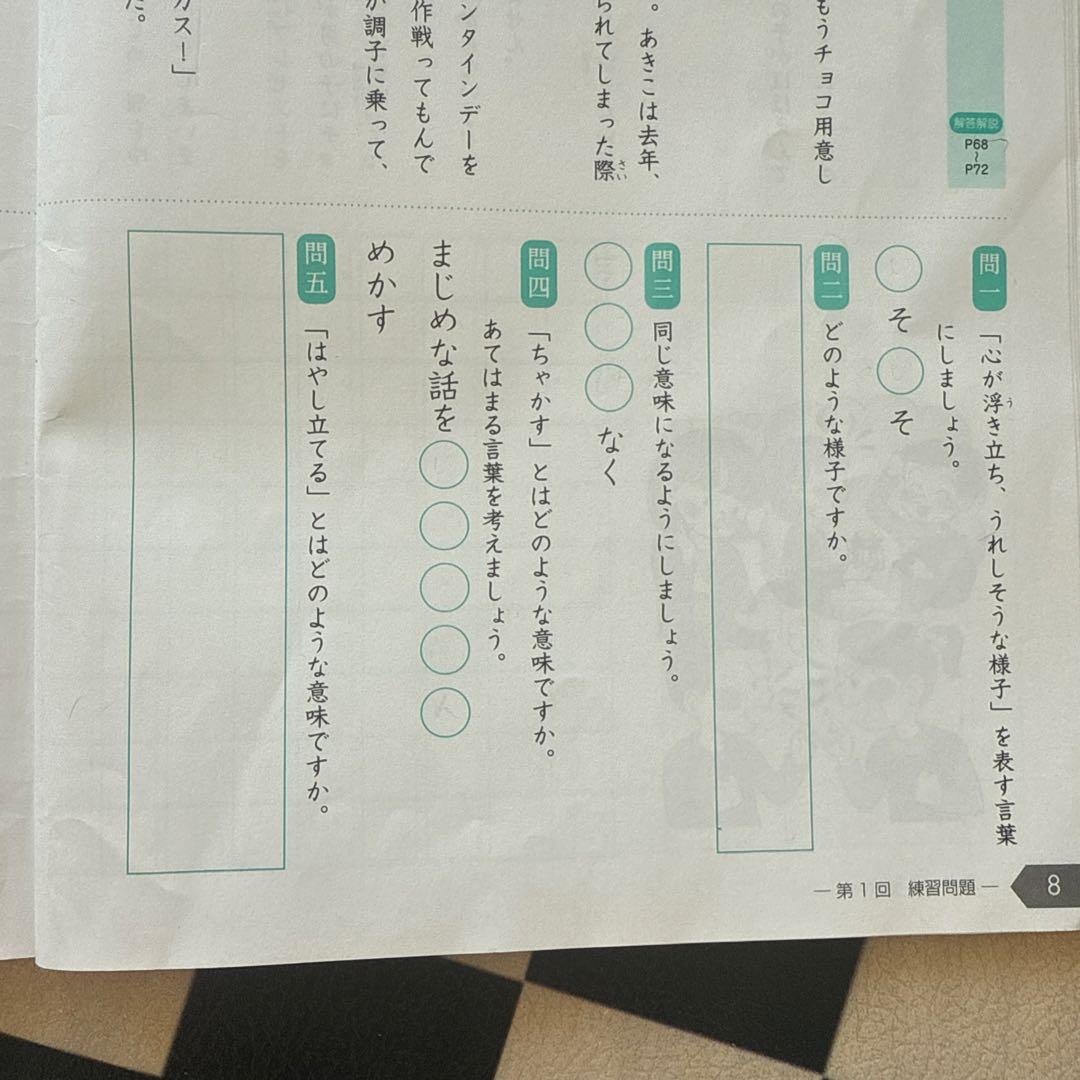 解答解説
P68
〜
P72
もうチョコ用意し
。あきこは去年、
られてしまった際
さい
ンタインデーを
作戦ってもんで
が調子に乗って、
カス！」
た。
問一
「心が浮き立ち、うれしそうな様子」を表す言葉
う
にしましょう。
○そ○そ
問二
どのような様子ですか。
問三
同じ意味になるようにしましょう。
○○○なく
問四
「ちゃかす」とはどのような意味ですか。
あてはまる言葉を考えましょう。
まじめな話を○○○○○
めかす
問五
「はやし立てる」とはどのような意味ですか。
― 第1回 練習問題 ―
8